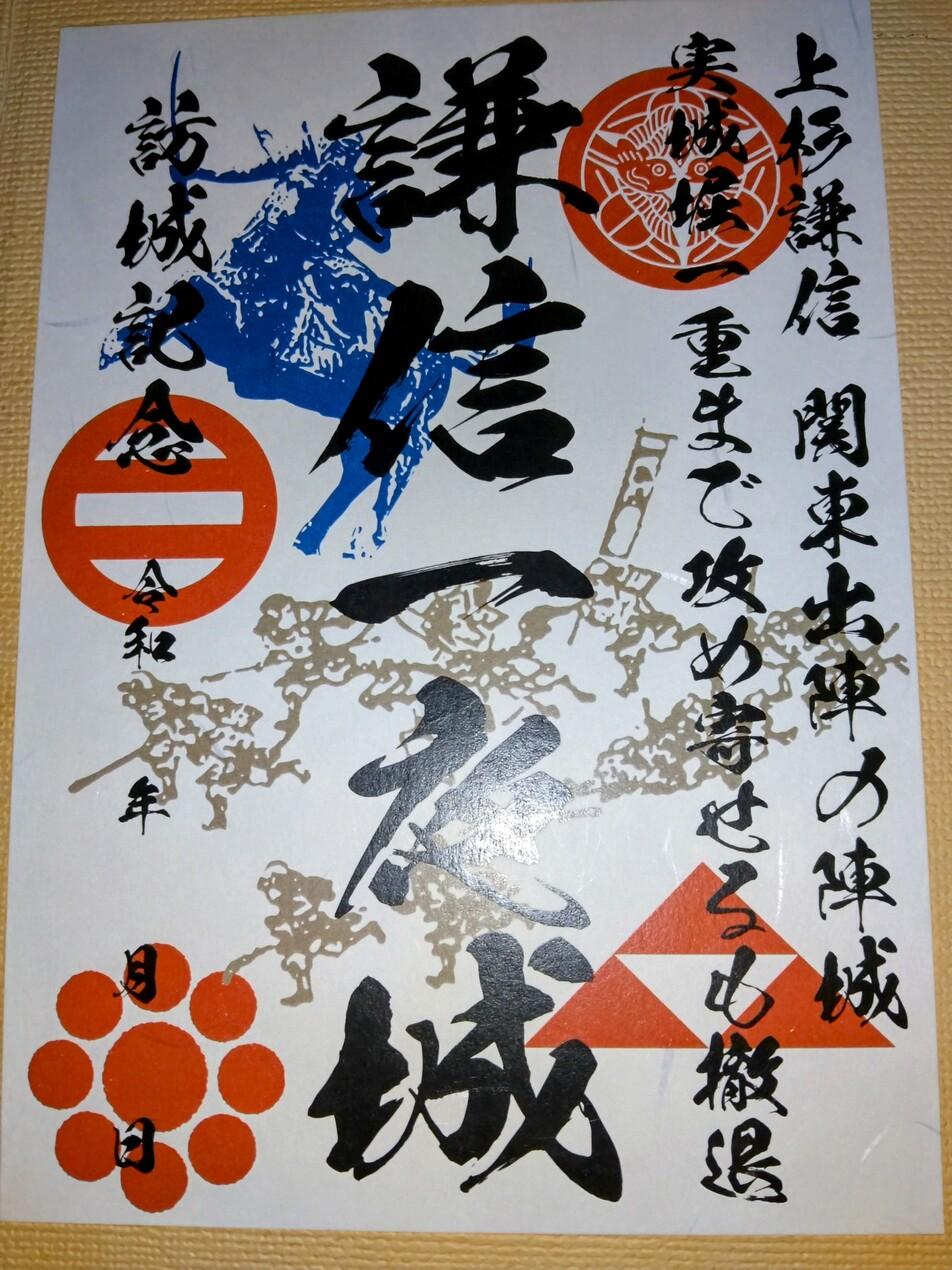 上杉謙信 関東出陣の陣城
実城堀一重まで攻め寄せるも撤退
謙信一夜城
訪城記念
令和 年 月 日